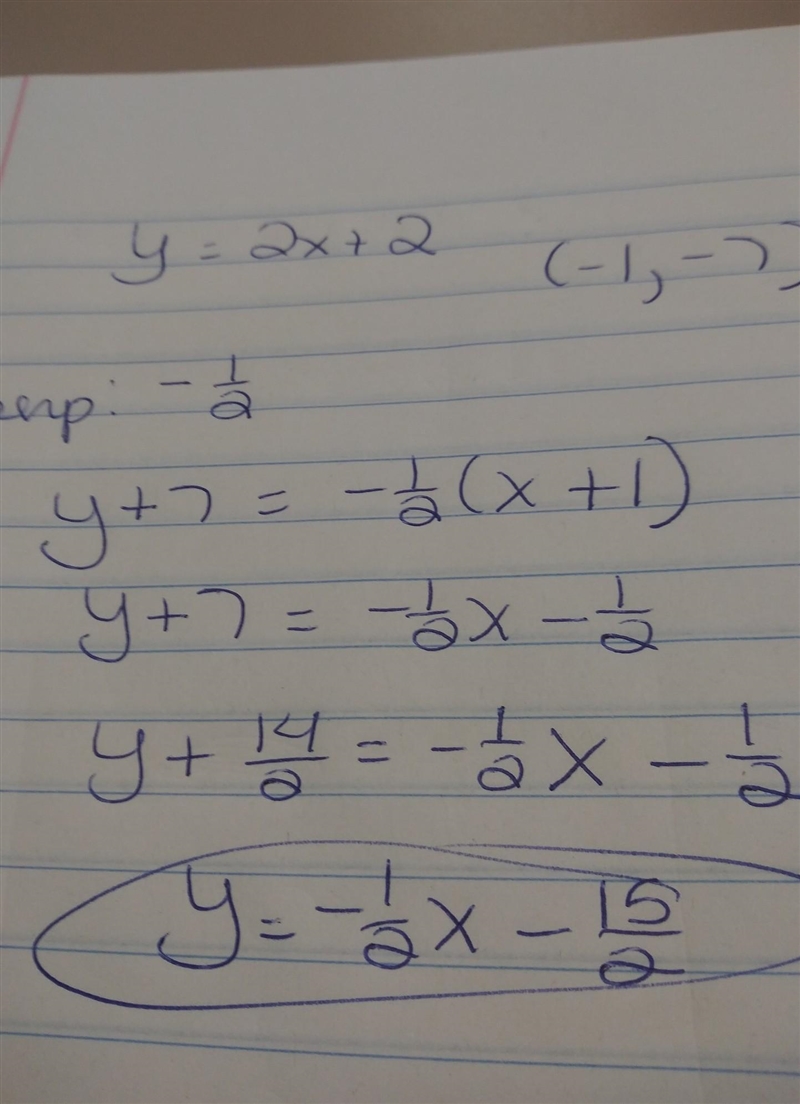 y = 2x + 2 (-1, -7)
: - 1/2
y + 7 = - 1/2 (x + 1)
y + 7 = - 1/2 x - 1/2
y + 14/2 = - 1/2 x - 1/2
y = - 1/2 x - 15/2